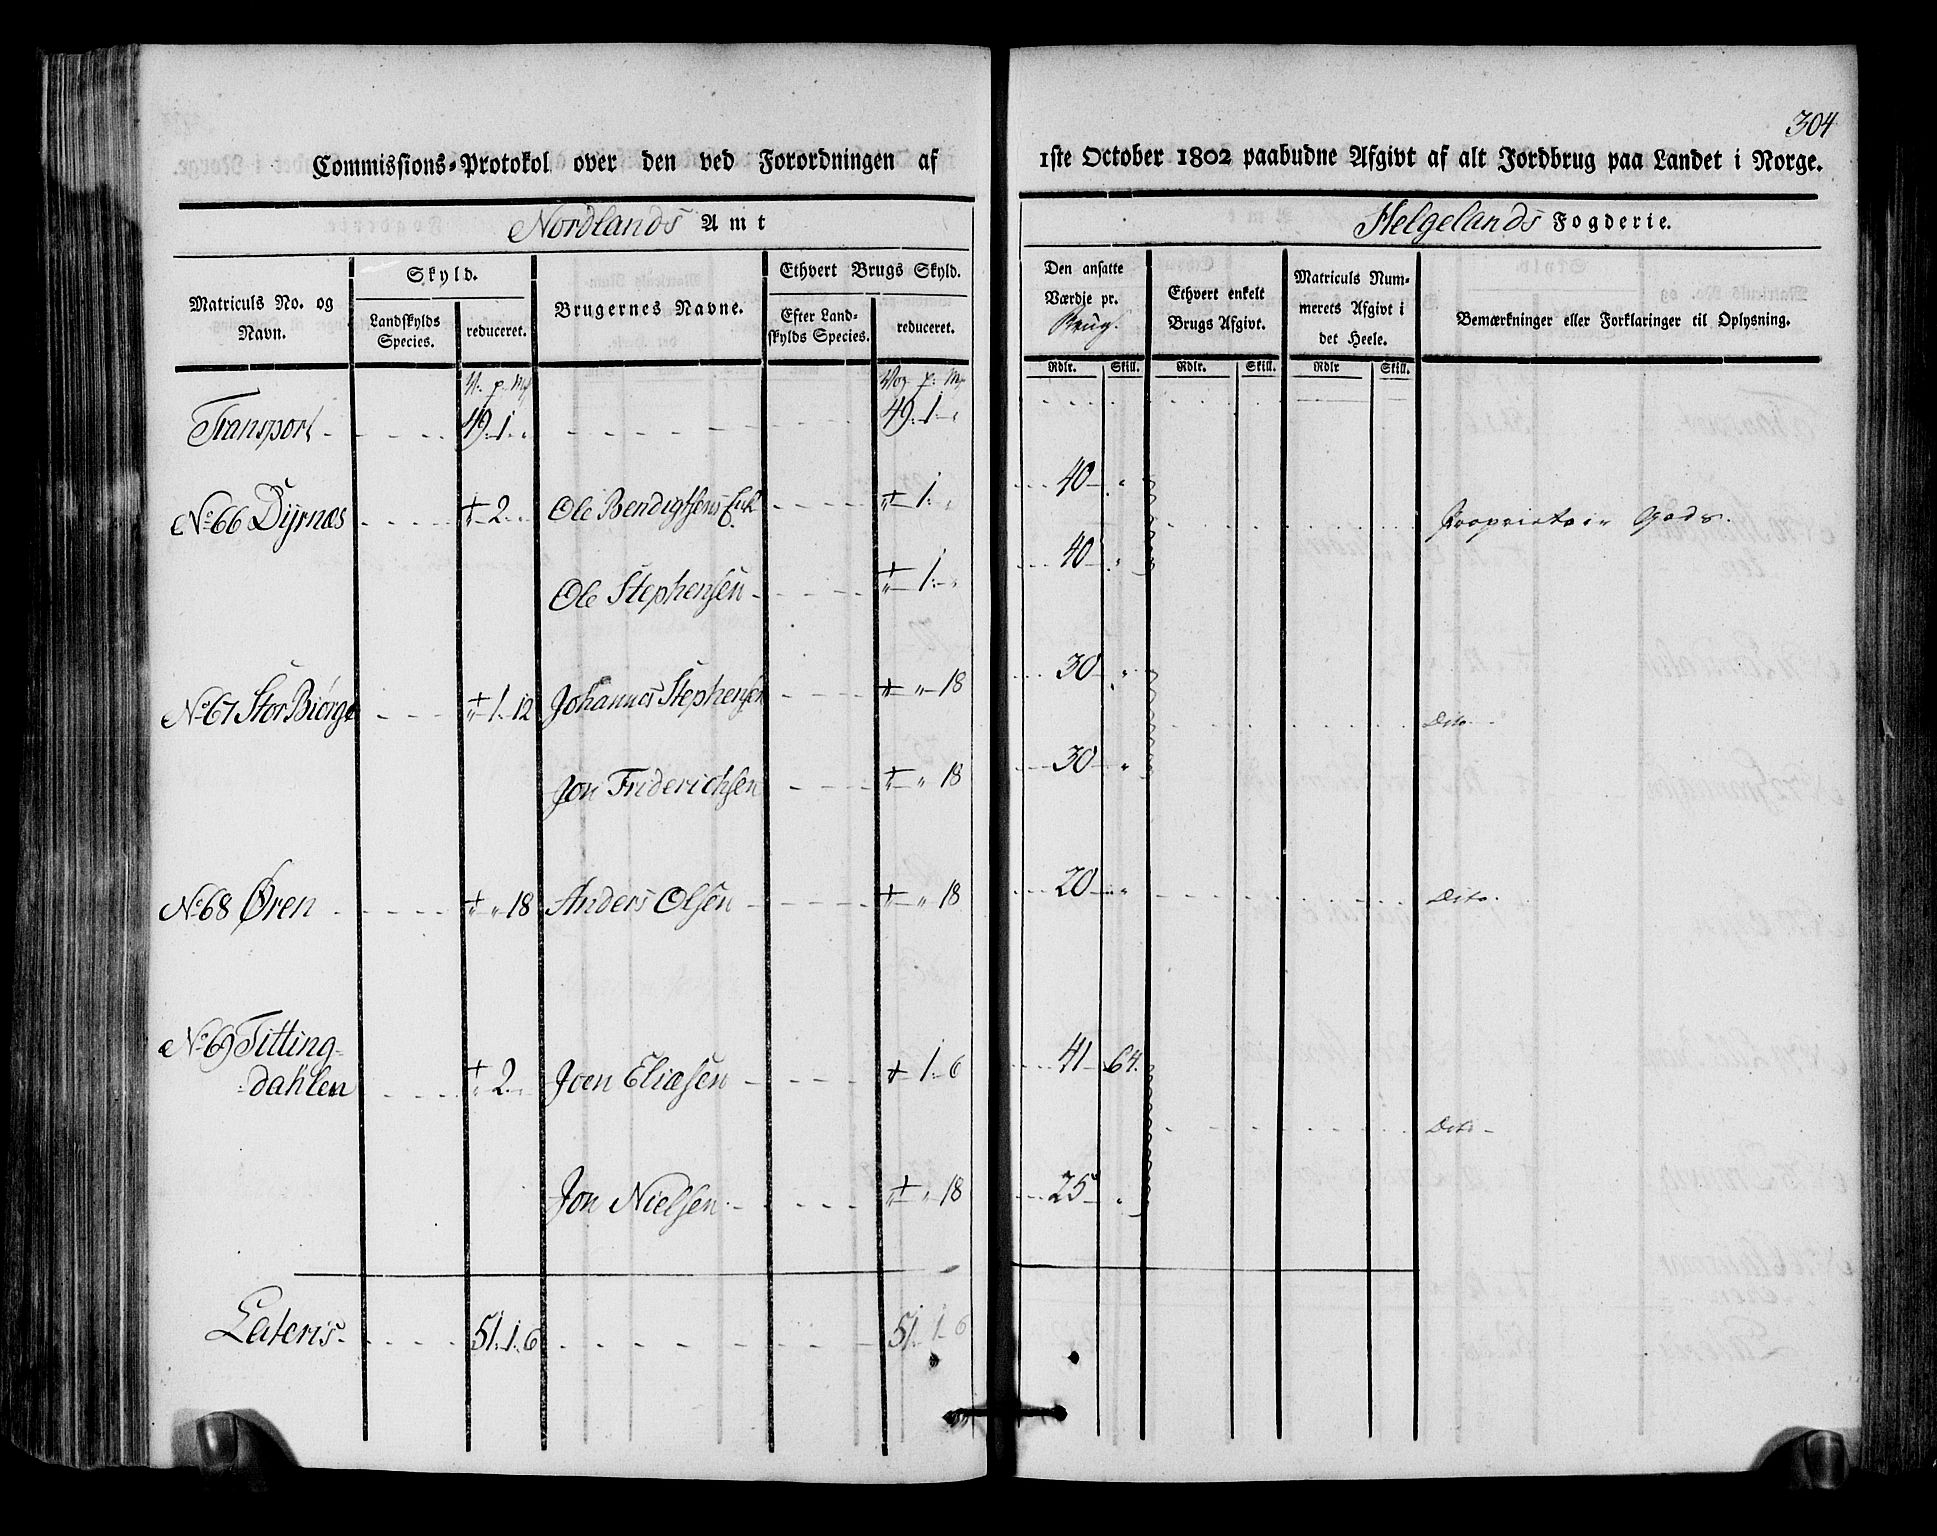 304
Commissions-Protokol over den ved Forordningen af 1ste October 1802 paabudne Afgivt af alt Jordbrug paa Landet i Norge.
Nordlands Amt
Helgelands Fogderie.
Matriculs No. og Navn.
Skyld.
Landskylds Species.
reduceret.
Brugernes Navne.
Ethvert Brugs Skyld.
Efter Landskylds Species.
reduceret.
Den ansatte Værdje pr. Brug.
Rdlr. Skill.
Ethvert enkelt Brugs Afgivt.
Rdlr. Skill.
Matriculs Nummerets Afgivt i det Heele.
Rdlr Skill.
Bemærkninger eller Forklaringer til Oplysning.
V. p. Mk
Vog p: Mk
Transport 49.1. 49.1.
No 66 Dyrnæs 2 Ole Bendigtsens Enk 1. 40 Proprietair Gods.
Ole Stephensen 1. 40
No 67 Stor Biørge 1. 12 Johannes Stephensen 18 30 Dito
Jon Friderichsen 18 30
No 68 Øren 18 Anders Olsen 18 20 Dito.
No 69 Titting-
dahlen 2 Joen Eliæsen 1. 6 41 64.
Dito
Jon Nielsen 18 25
Lateris 51.1.6 51.1.6